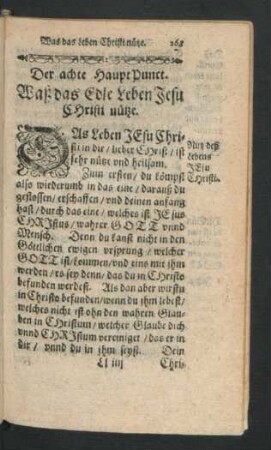 Was das leben Christi nütze. 268
Der achte HauptPunct.
Waß das Edle Leben Jesu
CHristi nütze.
DAs Leben JEsu Chri-
sti in dir / lieber CHrist / ist
sehr nütz vnd heilsam.
Nutz deß
lebens
JEsu
CHristi.
Zum ersten / du kömpst
also wiederumb in das eine / darauß du
geflossen / erschaffen / vnd deinen anfang
hast / durch das eine / welches ist JEsus
CHRJstus / wahrer GOTT vnnd
Mensch. Denn du kanst nicht in den
Göttlichen ewigen vrsprung / welcher
GOTT ist / kommen / vnd eins mit jhm
werden / es sey denn / das du in CHristo
befunden werdest. Als dan aber wirstu
in Christo befunden / wenn du jhm lebest /
welches nicht ist ohn den wahren Glau-
ben in CHristum / welcher Glaube dich
vnnd CHRJstum vereiniget / das er in
dir / vnnd du in jhm seyst. Dein
Ll iiij Chri-